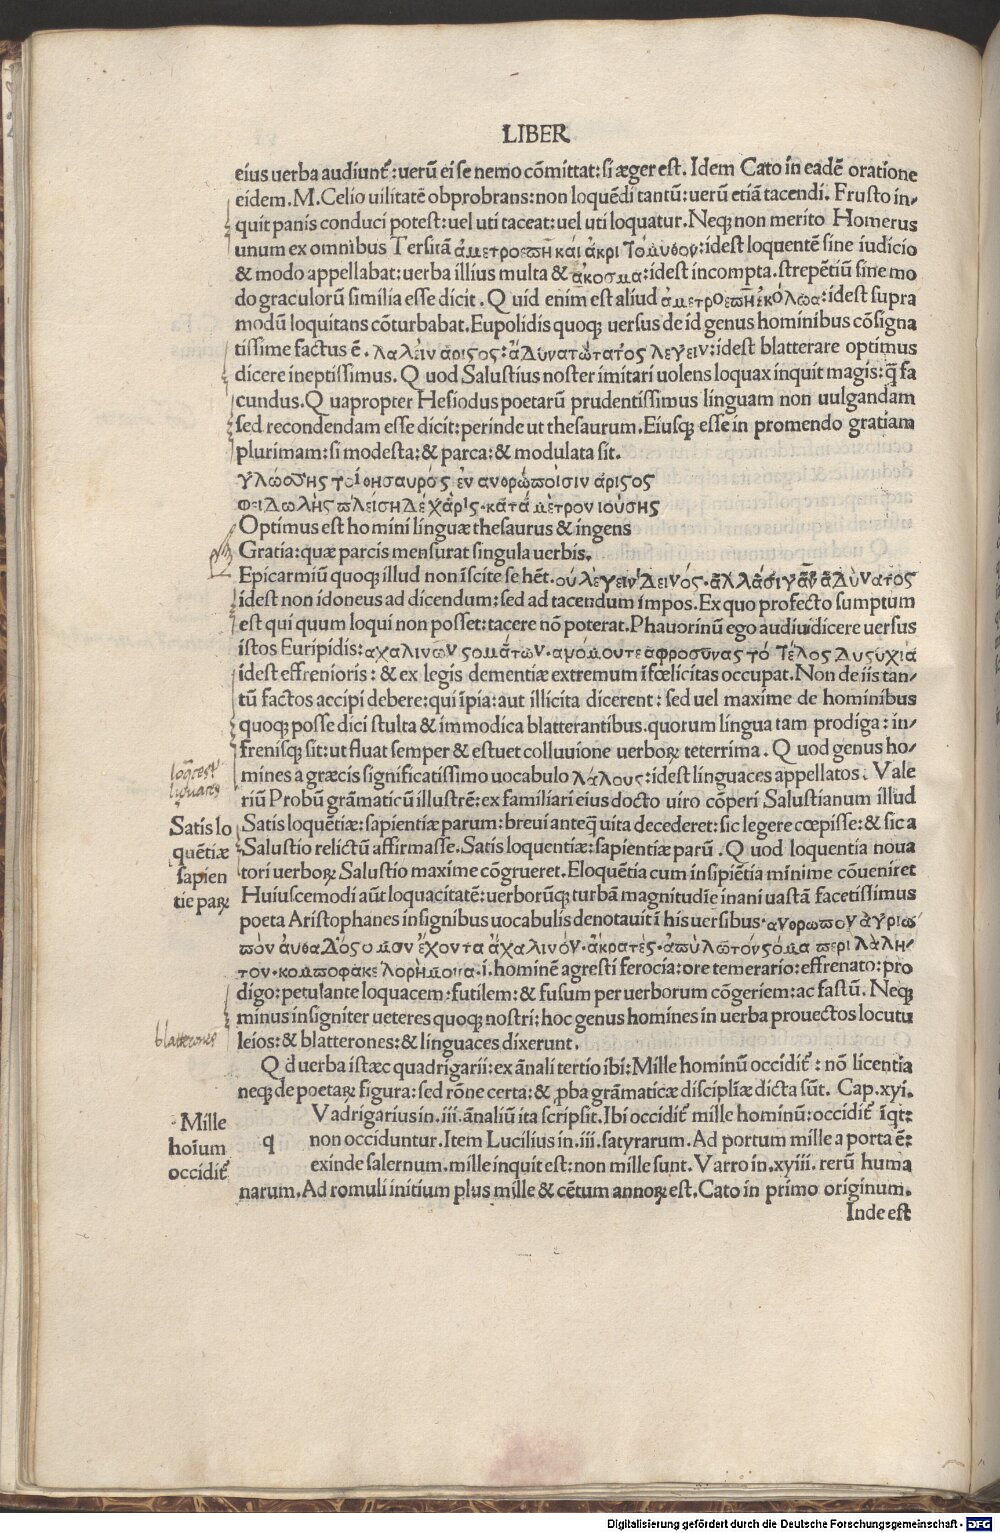 LIBER
eius uerba audiunt᷑:uerū ei se nemo cōmittat:si æger est. Idem Cato in eadē oratione
eidem.M.Celio uilitatē obprobrans:non loquēdi tantū:uerū etiā tacendi. Frusto in-
quit panis conduci potest:uel uti taceat:uel uti loquatur.Neqꝫ non merito Homerus
unum ex omnibus Tersitā ἀμετροεπῆ καί ἀκριτόμυθον:idest loquentē sine iudicio
& modo appellabat:uerba illius multa & ἀκοσμα:idest incompta.strepētiū sine mo
do graculorū similia esse dicit.Quid enim est aliud ἀμετροεπὴ ἐκόλωα:idest supra
modū loquitans cōturbabat.Eupolidis quoqꝫ uersus de id genus hominibus cōsigna
tissime factus ē. λαλεῖν ἀριϛος:ἀδυνατώτατος λεγειν:idest blatterare optimus
dicere ineptissimus.Quod Salustius noster imitari uolens loquax inquit magis:q̄ fa
cundus.Quapropter Hesiodus poetarū prudentissimus linguam non uulgandam
sed recondendam esse dicit:perinde ut thesaurum.Eiusqꝫ esse in promendo gratiam
plurimam:si modesta:& parca:& modulata sit.
γλώσσης τοί θησαυρός ἐν ανθρώποισιν ἀριϛος
φειδωλὴς πλείση δέ χάρις·κατά μὲτρον ιούσης
Optimus est homini linguæ thesaurus & ingens
Gratia:quæ parcis mensurat singula uerbis.
Epicarmiū quoqꝫ illud non īscite se hēt.ού λὲγειν δεινός·ἀλλὰ σιγᾶν ἀδὺνατος
idest non idoneus ad dicendum:sed ad tacendum impos.Ex quo profecto sumptum
est qui quum loqui non posset:tacere nō poterat.Phauorinū ego audiui dicere uersus
istos Euripidis:αχαλινων ϛομάτων·ανομουτε αφροσύνας τό τέλος δυϛυχιά
idest effrenioris:& ex legis dementiæ extremum īfœlicitas occupat.Non de iis tan-
tū factos accipi debere:qui īpia:aut illicita dicerent:sed uel maxime de hominibus
quoqꝫ posse dici stulta & immodica blatterantibus.quorum lingua tam prodiga:in-
frenisqꝫ sit:ut fluat semper & estuet colluuione uerboꝝ teterrima.Quod genus ho-
mines a græcis significatissimo uocabulo λάλους:idest linguaces appellatos.Vale
riū Probū grāmaticū illustrē:ex familiari eius docto uiro cōperi Salustianum illud
Satis loquētiæ:sapientiæ parum:breui anteq̄ uita decederet:sic legere cœpisse:& sic a
Salustio relictū affirmasse.Satis loquentiæ:sapientiæ parū.Quod loquentia noua
tori uerboꝝ Salustio maxime cōgrueret.Eloquētia cum insipiētia minime cōueniret
Huiuscemodi aūt loquacitatē:uerborūqꝫ turbā magnitudīe inani uastā facetissimus
poeta Aristophanes insignibus uocabulis denotauit ī his uersibus.ανθρωπον ἀγριω
πὸν ἀυθαδόςομον ἔχοντα ἀχαλινόν·ἀκρατὲς·ἀπὺλωτόν ϛόμα περιλὰλη-
τον·κομποφακελορήμονα.i.hominē agresti ferocia:ore temerario:effrenato:pro
digo:petulante loquacem:futilem:& fusum per uerborum cōgeriem:ac fastū.Neqꝫ
minus insigniter ueteres quoqꝫ nostri:hoc genus homines in uerba prouectos locutu
leios:& blatterones:& linguaces dixerunt.
Qd uerba istæc quadrigarii:ex ānali tertio ibi:Mille hominū occidit᷑:nō licentia
neqꝫ de poetaꝝ figura:sed rōne certa:& ꝓba grāmaticæ disciplīæ dicta sūt. Cap.xyi.
Vadrigarius in.iii.ānaliū ita scripsit.Ibi occidit᷑ mille hominū:occidit᷑ īqt:
q non occiduntur.Item Lucilius in.iii.satyrarum.Ad portum mille a porta ē:
exinde salernum.mille inquit est:non mille sunt.Varro in.xyiii.rerū huma
narum.Ad romuli initium plus mille & cētum annoꝝ est.Cato in primo originum.
Inde est
Satis lo
quētiæ
sapien
tie paꝝ
blatterones
Mille
hoīum
occidit᷑
Digitalisierung gefördert durch die Deutsche Forschungsgemeinschaft - DFG